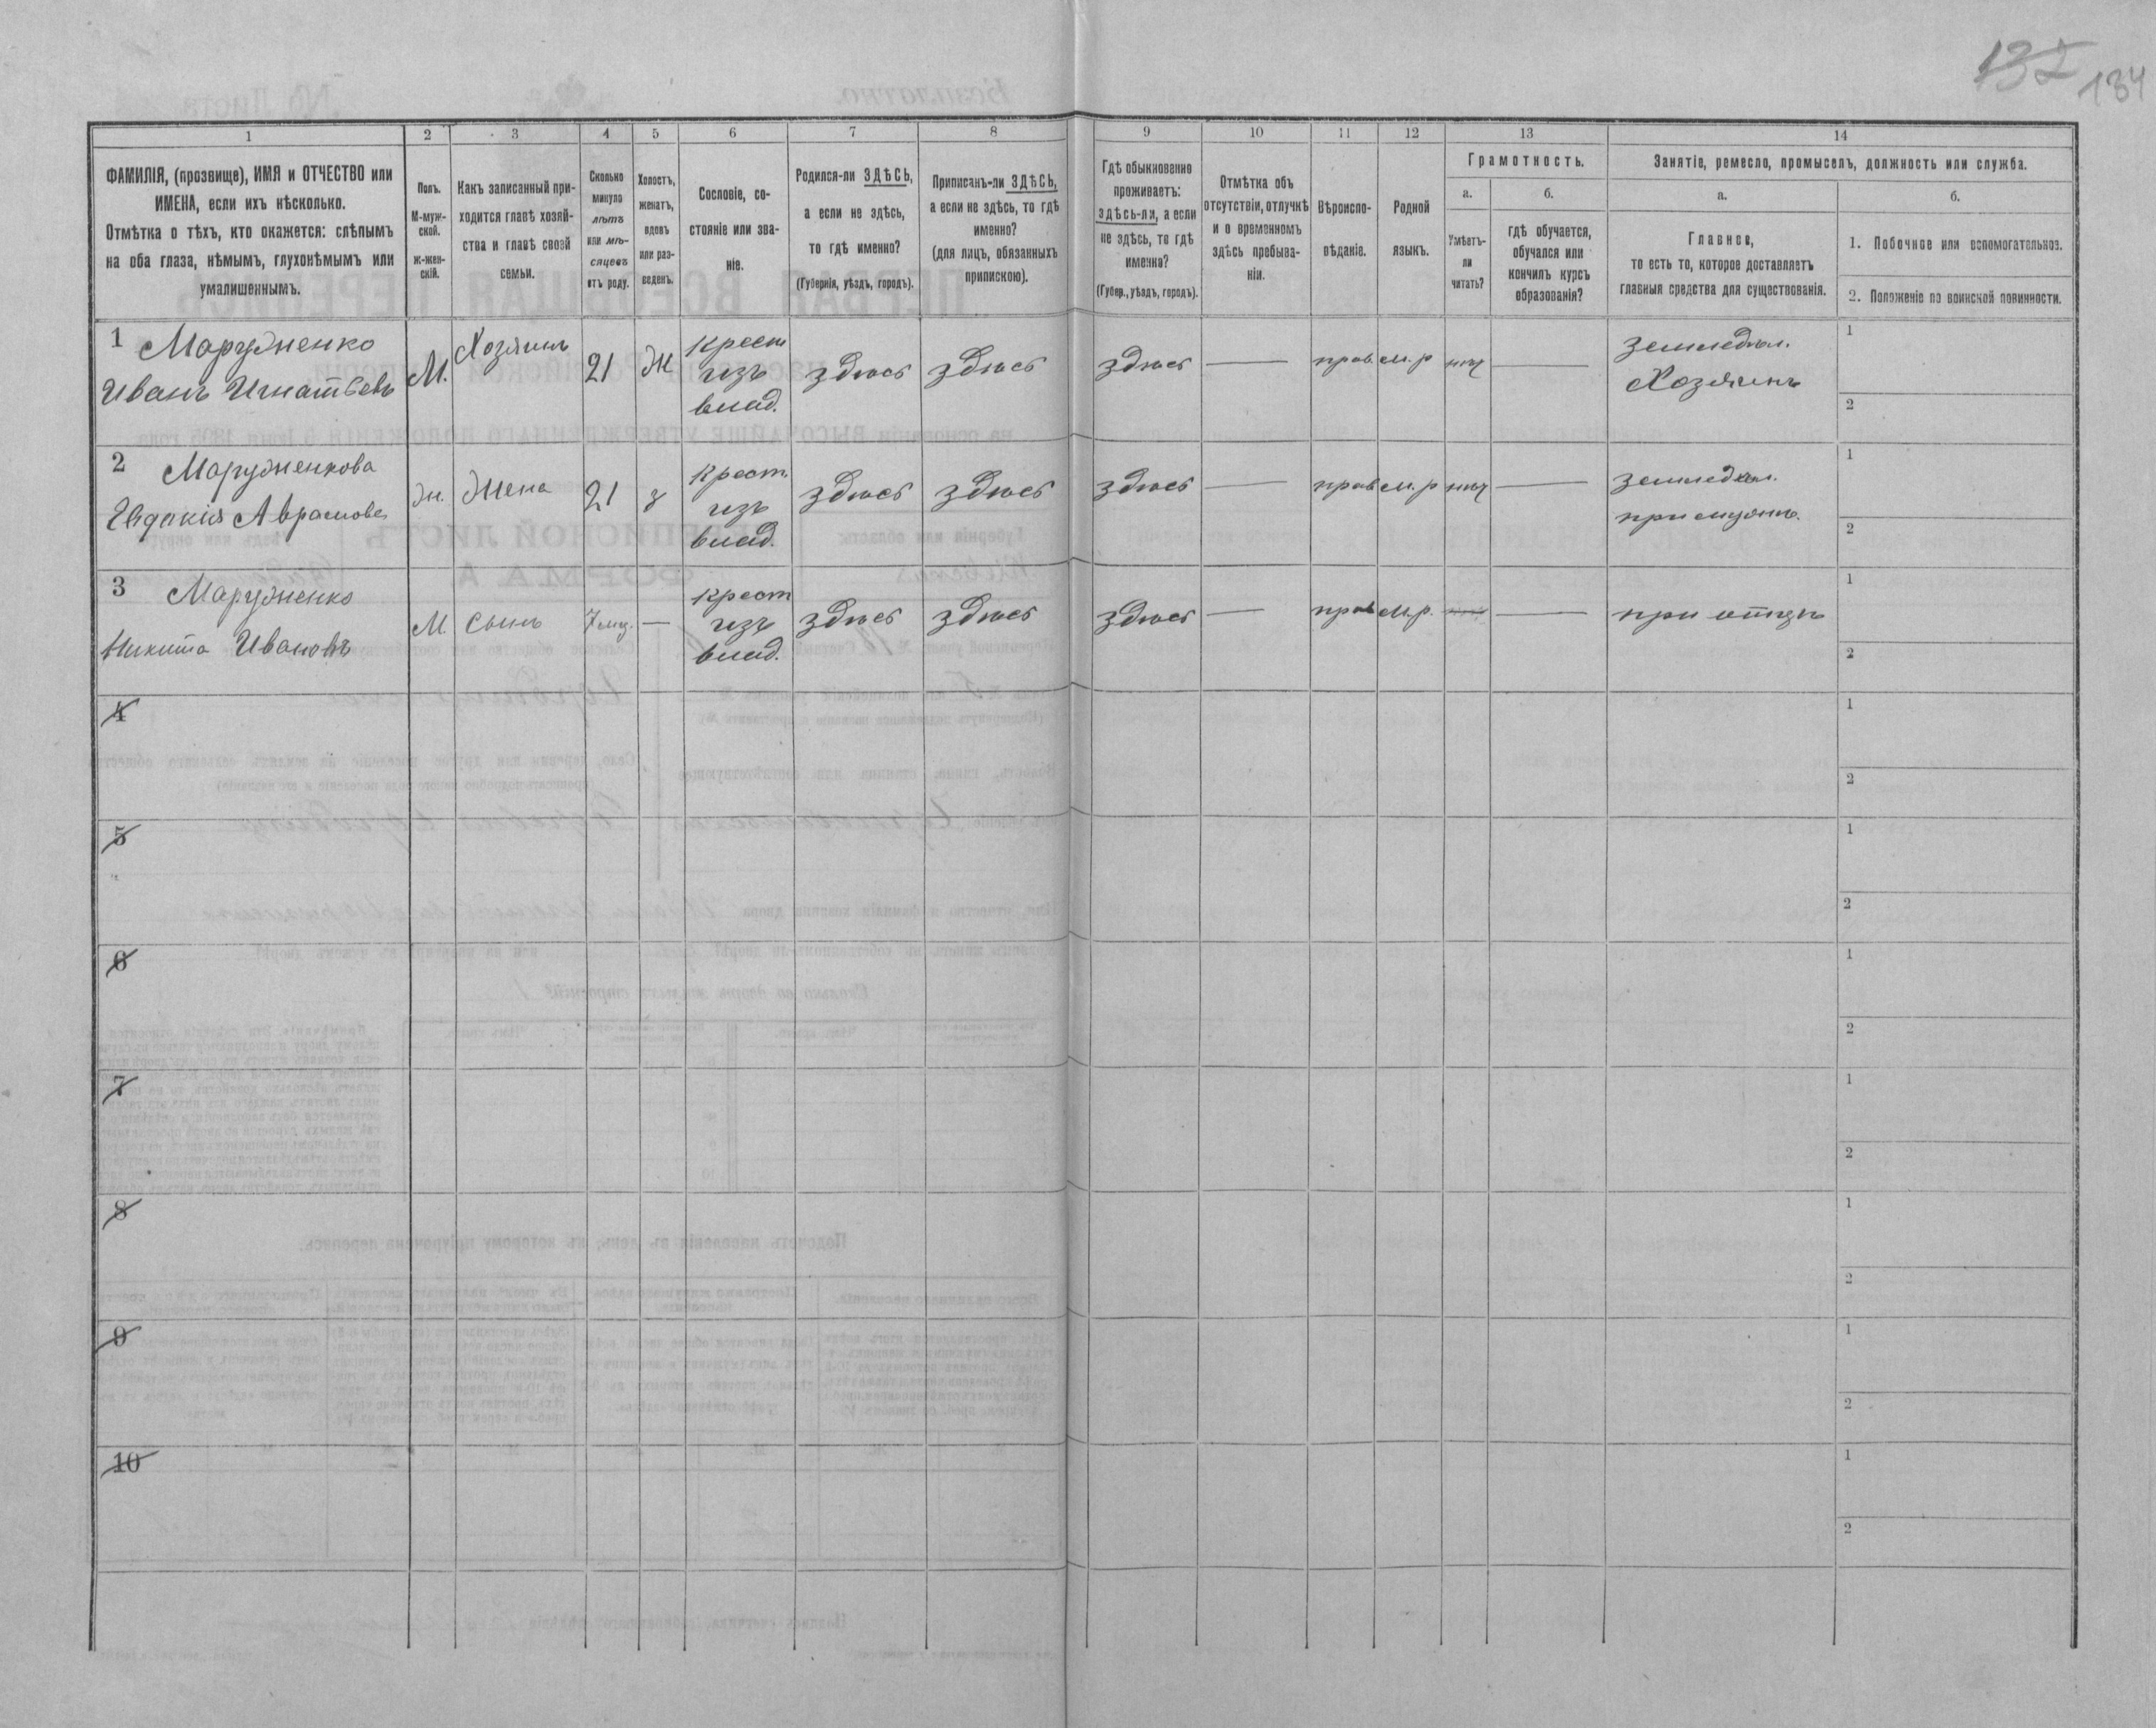 132
134
1
2
3
4
5
6
7
8
9
10
11
12
13
14
ФАМИЛІЯ, (прозвище), ИМЯ и ОТЧЕСТВО или
ИМЕНА, если ихъ нѣсколько.
Отмѣтка о тѣхъ, кто окажется: слѣпымъ
на оба глаза, нѣмымъ, глухонѣмымъ или
умалишеннымъ.
Полъ.
М-муж-
ской.
ж-жен-
скій.
Какъ записанный при-
ходится главѣ хозяй-
ства и главѣ своей
семьи.
Сколько
минуло
лѣтъ
или мѣ-
сяцевъ
отъ роду.
Холостъ,
женатъ,
вдовъ
или раз-
веденъ.
Сословіе, со-
стояніе или зва-
ніе.
Родился-ли ЗДѢСЬ,
а если не здѣсь,
то гдѣ именно?
(Губернія, уѣздъ, городъ).
Приписанъ-ли ЗДѢСЬ,
а если не здѣсь, то гдѣ
именно?
(для лицъ, обязанныхъ
припискою).
Гдѣ обыкновенно
проживаетъ:
здѣсь-ли, а если
не здѣсь, то гдѣ
именно?
(Губер., уѣздъ, городъ).
Отмѣтка объ
отсутствіи, отлучкѣ
и о временномъ
здѣсь пребыва-
ніи.
Вѣроиспо-
вѣданіе.
Родной
языкъ.
Грамотность.
а.
б.
Умѣетъ-
ли
читать?
гдѣ обучается,
обучался или
кончилъ курсъ
образованія?
Занятіе, ремесло, промыселъ, должность или служба.
а.
б.
Главное,
то есть то, которое доставляетъ
главныя средства для существованія.
1. Побочное или вспомогательное.
2. Положеніе по воинской повинности.
1 Марудненко
Иванъ Игнатьевъ
М.
Хозяинъ
21
Ж
Крест
изъ
влад.
здѣсь
здѣсь
здѣсь
—
прав.
м. р
нѣт
—
земледѣл.
Хозяинъ
1
2
2 Марудненкова
Евдокія Аврамова
Ж.
Жена
21
з
Крест.
изъ
влад.
здѣсь
здѣсь
здѣсь
—
прав
м. р
нѣт
—
земледѣл.
при мужѣ.
1
2
3 Марудненко
Никита Ивановъ
М.
Сынъ
7 мц.
—
Крест
изъ
влад.
здѣсь
здѣсь
здѣсь
—
прав
м. р.
—
при отцѣ
1
2
4
1
2
5
1
2
6
1
2
7
1
2
8
1
2
9
1
2
10
1
2